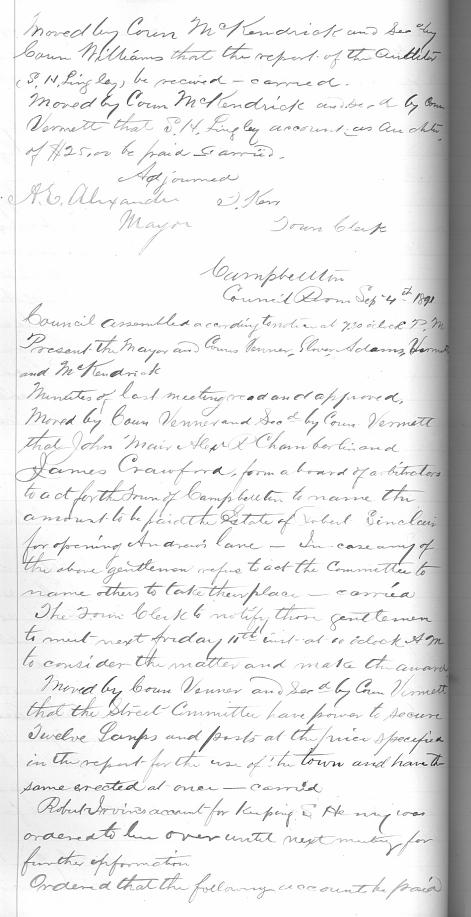 Moved by Coun McKendrick and Secd by
Coun Williams that the report of the Auditor
(S. H. Lingley) be recived - carried.
Moved by Coun McKendrick and Secd by Coun
Vermett that S. H. Lingley account as Auditor
of $25.00 be paid carried.
Adjourned
A. E. Alexander
Mayor
T. Kerr
Town Clerk
Campbellton
Council Room Sep 4th 1891
Council assembled according to notice at 7.30 oclock P.M
Present the Mayor and Couns Venner, Glover, Adams, Vermett
and McKendrick
Minutes of last meeting read and approved,
Moved by Coun Venner and Secd by Coun Vermett
that John Mair Alex Chamberlin and
James Crawford, form a board of arbitrators
to act for the Town of Campbellton to name the
amount to be paid the Estate of Robert Sinclair
for opening Andrew lane - In case any of
the above gentlemen refuse to act the Committee to
name others to take their place - carried
The Town Clerk to notify those gentlemen
to meet next friday 11th inst at 10 oclock AM
to consider the matter and make the award
Moved by Coun Venner and Secd by Coun Vermett
that the Street Committee have power to secure
Twelve Lamps and posts at the price specified
in the report for the use of the town and have the
same erected at once - carried
Robert Irvine account for Keeping was
ordered to lie over until next meeting for
further information
Ordered that the following account be paid